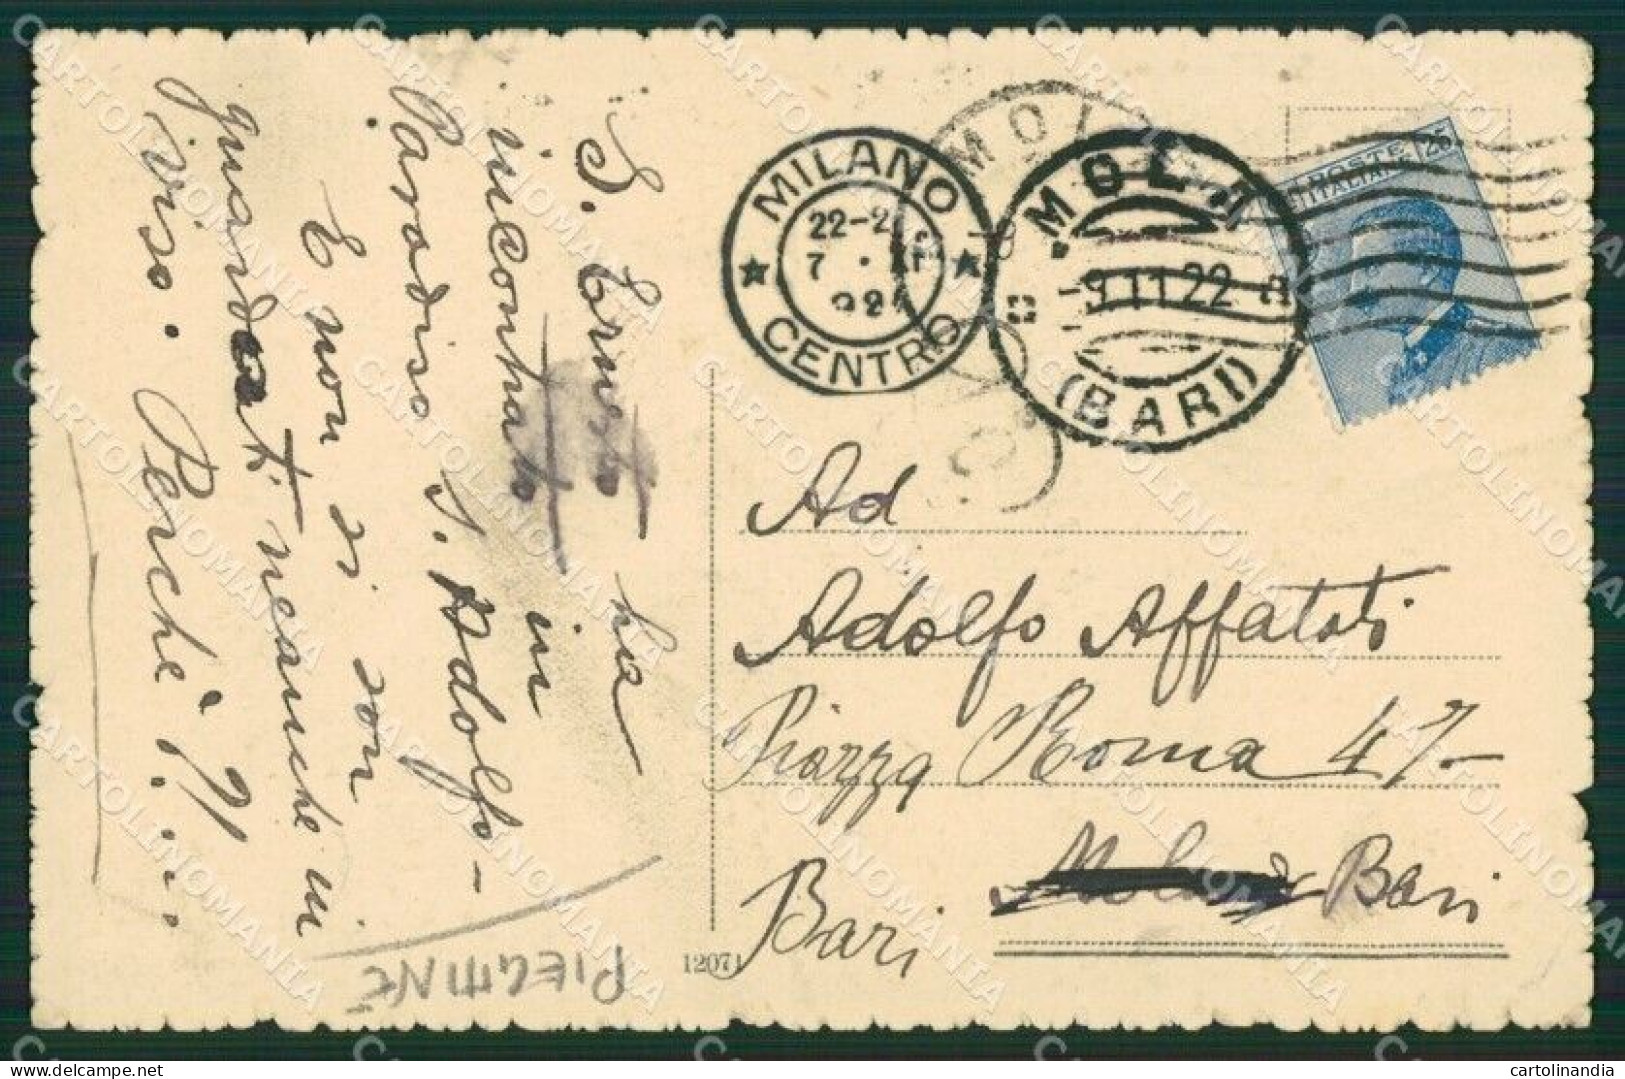 S. Ernesto ha
incontrato in
Paradiso S. Adolfo-
E non si son
guardati neanche in
viso. Perchè?!...
MILANO
22-2
7
CENTRO
MOLA
9.11.22
(BARI)
POSTE
ITALIANE
25
Ad
Adolfo Affatati
Piazza Roma 47-
Bari
Bari
12071
CARTOLINOMANIA
cartolinandia